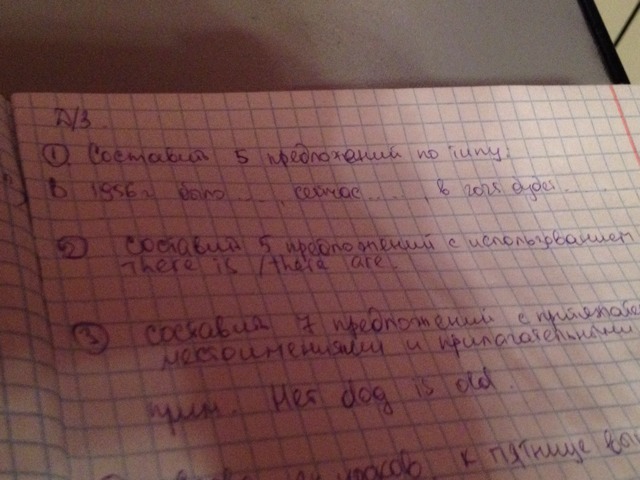 Д/З.
① Составить 5 предложений по типу:
В 1956г было..., сейчас....., в 2012 будет.....
② Составить 5 предложений с использованием
There is / there are.
③ составить 7 предложений с притяжате
местоимениями и прилагательными
прим. Her dog is old.
уроков. к пятнице